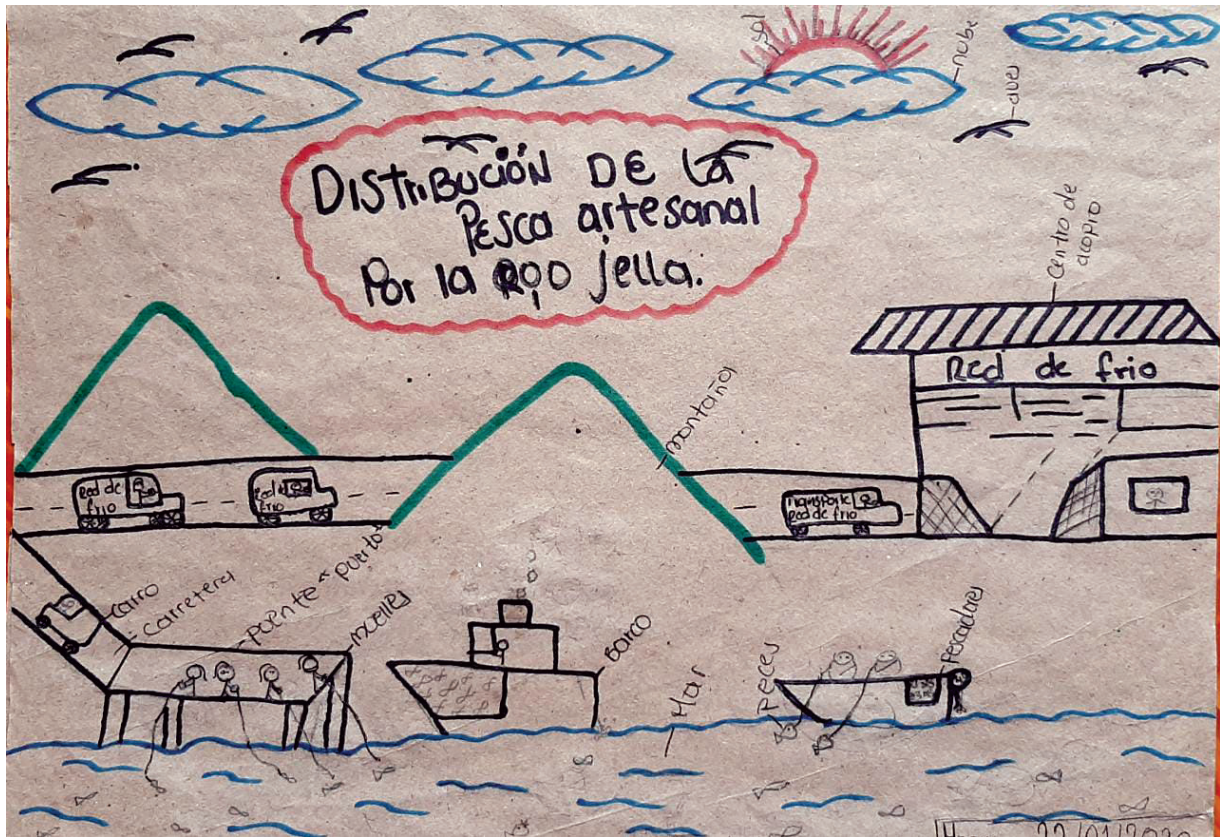 sol
nube
aves
DISTRIBUCIÓN DE LA
PESCA artesanal
Por la
jella.
Centro de
acopio
Red de frio
montaña
Red de
frio
Red de
frio
Transporte
Red de frio
carro
carretera
puente
puerto
muelles
barco
Mar
peces
Pescadores